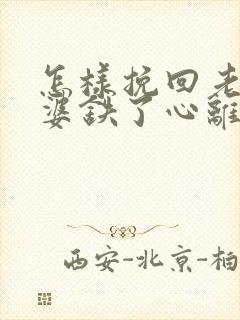 怎樣挽回老
婆鉄了心離
西安-北京-柏